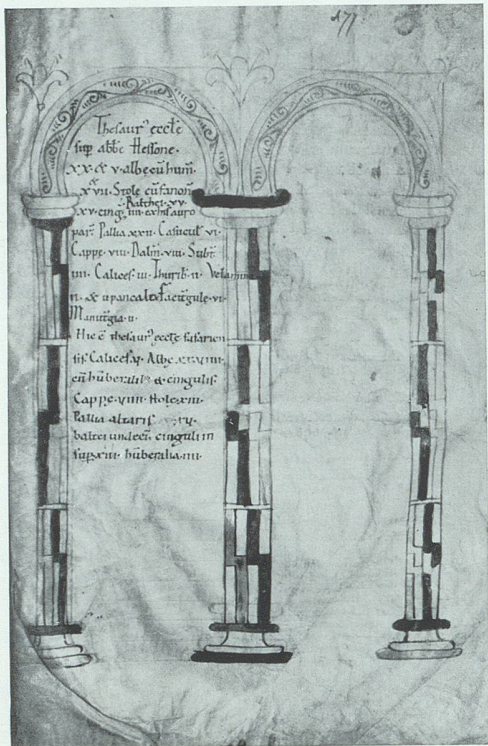 171
Thesaur' eccle
sup abbe Hessone.
XX. & V. albe cu hum.
&
XVII. Stole cu fanon
Balthei. XV.
XV. cing. IIII. ex his auro
parat. Pallia XXII. Casucul. VI.
Cappe. VIII. Dalm. VIII. Subt
IIII. Calices. III. Thurib. II. Velamina
II. & II pancalta. Facitgule. VI.
Manutgia. II.
Hic e thesaur' eccle susarien
sis Calices. Albe
cu huberalib' & cingulis
Cappe. VIIII. stole. XIII.
Pallia altaris
baltei undeci. cinguli in
sup. XIII. huberalia. IIII.